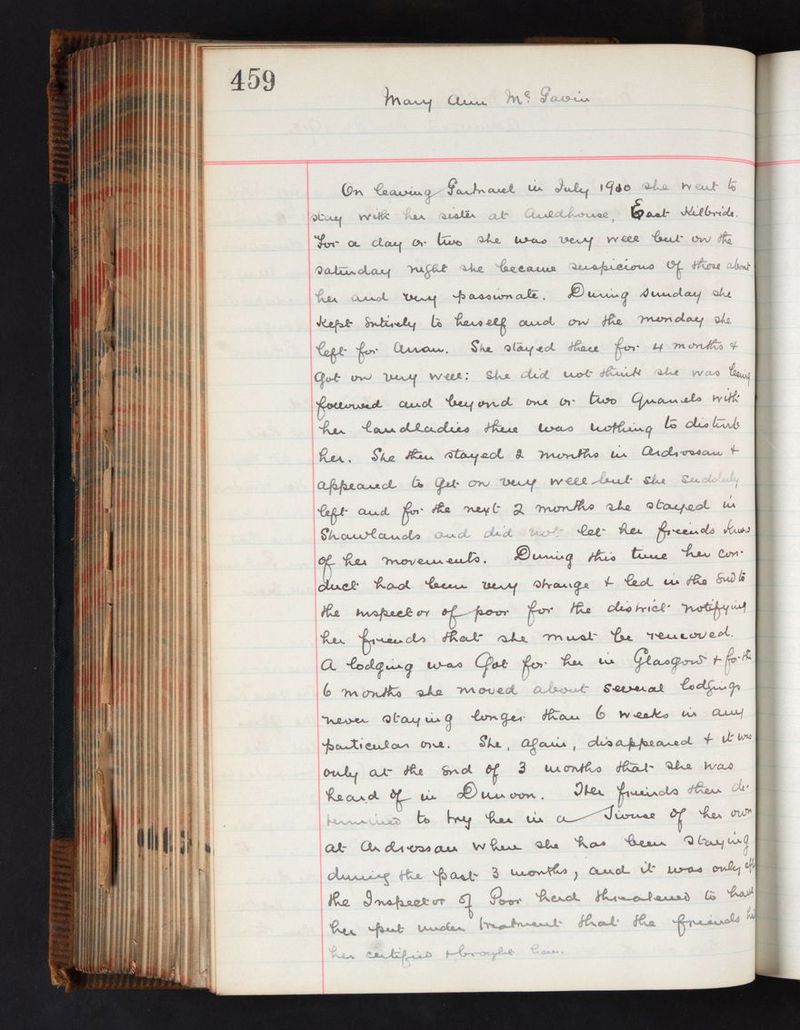 459
Mary Ann McGavin
On leaving Gartnavel in July 1910 she went to
stay with her sister at Auldhouse, East Kilbride.
For a day or two she was very well but on the
Saturday night she became suspicious of those about
her and very passionate. During Sunday she
kept entirely to herself and on the Monday she
left for Arran. She stayed there for 4 months &
got on very well: she did not think she was being
followed and beyond one or two quarrels with
her landladies there was nothing to disturb
her. She then stayed 2 months in Ardrossan &
appeared to get on very well but she suddenly
left and for the next 2 months she stayed in
Shawlands and did not let her friends know
of her movements. During this time her con-
duct had been very strange & led in the end to
the inspector of poor for the district notifying
her friends that she must be removed.
A lodging was got for her in Glasgow & for the
6 months she moved about several lodgings
never staying longer than 6 weeks in any
particular one. She, again, disappeared & it was
only at the end of 3 months that she was
heard of in Dunoon. Her friends then de-
termined to try her in a house of her own
at Ardrossan where she has been staying
during the past 3 months, and it was only after
the Inspector of Poor had threatened to have
her put under treatment that the friends had
her certified & brought here.